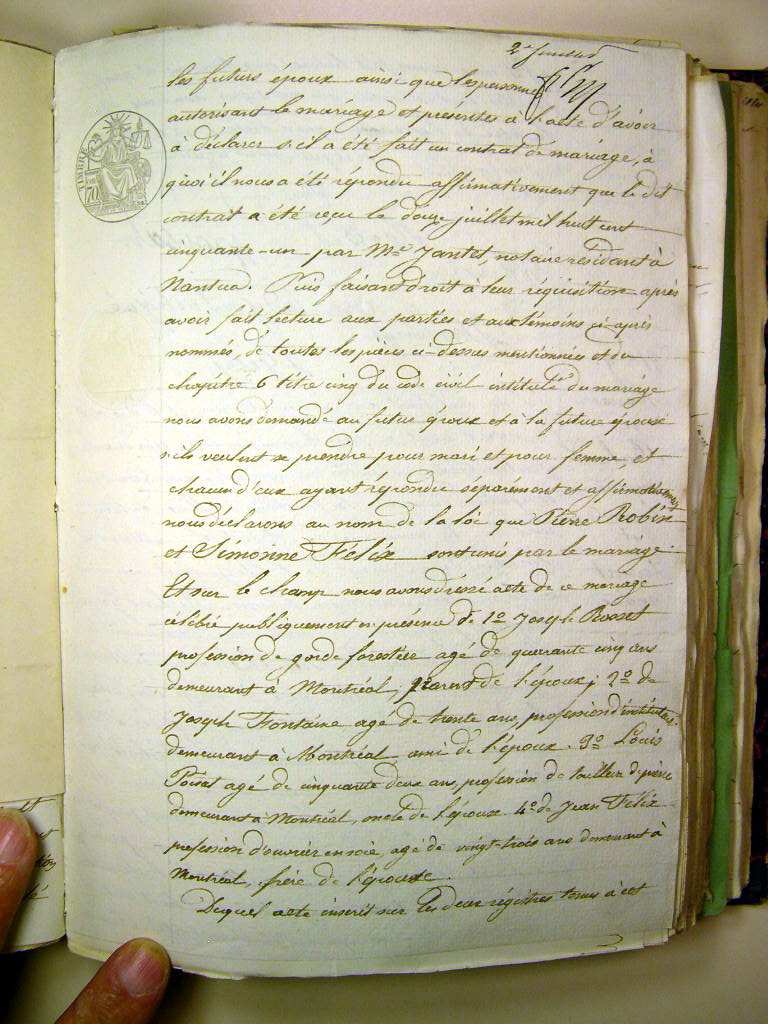 2e feuillet
les futurs époux ainsi que les personnes
autorisant le mariage et présentes à l'acte d'avoir
à déclarer s'il a été fait un contrat de mariage, à
quoi il nous a été répondu affirmativement que le dit
contrat a été reçu le douze juillet mil huit cent
cinquante-un par Me Jantet, notaire résidant à
Nantua. Puis faisant droit à leur réquisition après
avoir fait lecture aux parties et aux témoins ci-après
nommés, de toutes les pièces ci-dessus mentionnées et du
chapitre 6 titre cinq du code civil intitulé du mariage
nous avons demandé au futur époux et à la future épouse
s'ils veulent se prendre pour mari et pour femme, et
chacun d'eux ayant répondu séparément et affirmativement
nous déclarons au nom de la loi que Pierre Robin
et Simonne Félix sont unis par le mariage.
Et sur le champ nous avons dressé acte de ce mariage
célébré publiquement en présence de 1o Joseph Rosset
profession de garde forestier agé de quarante cinq ans
demeurant à Montréal, parent de l'époux; 2o de
Joseph Fontaine agé de trente ans, profession d'instituteur
demeurant à Montréal, ami de l'époux. 3o Louis
agé de cinquante deux ans, profession de tailleur de pierre
demeurant à Montréal, oncle de l'époux. 4o de Jean Félix
profession d'ouvrier en soie, agé de vingt-trois ans demeurant à
Montréal, frère de l'épouse.
Duquel acte inscrit sur les deux régistres tenus à cet
TIMBRE
70